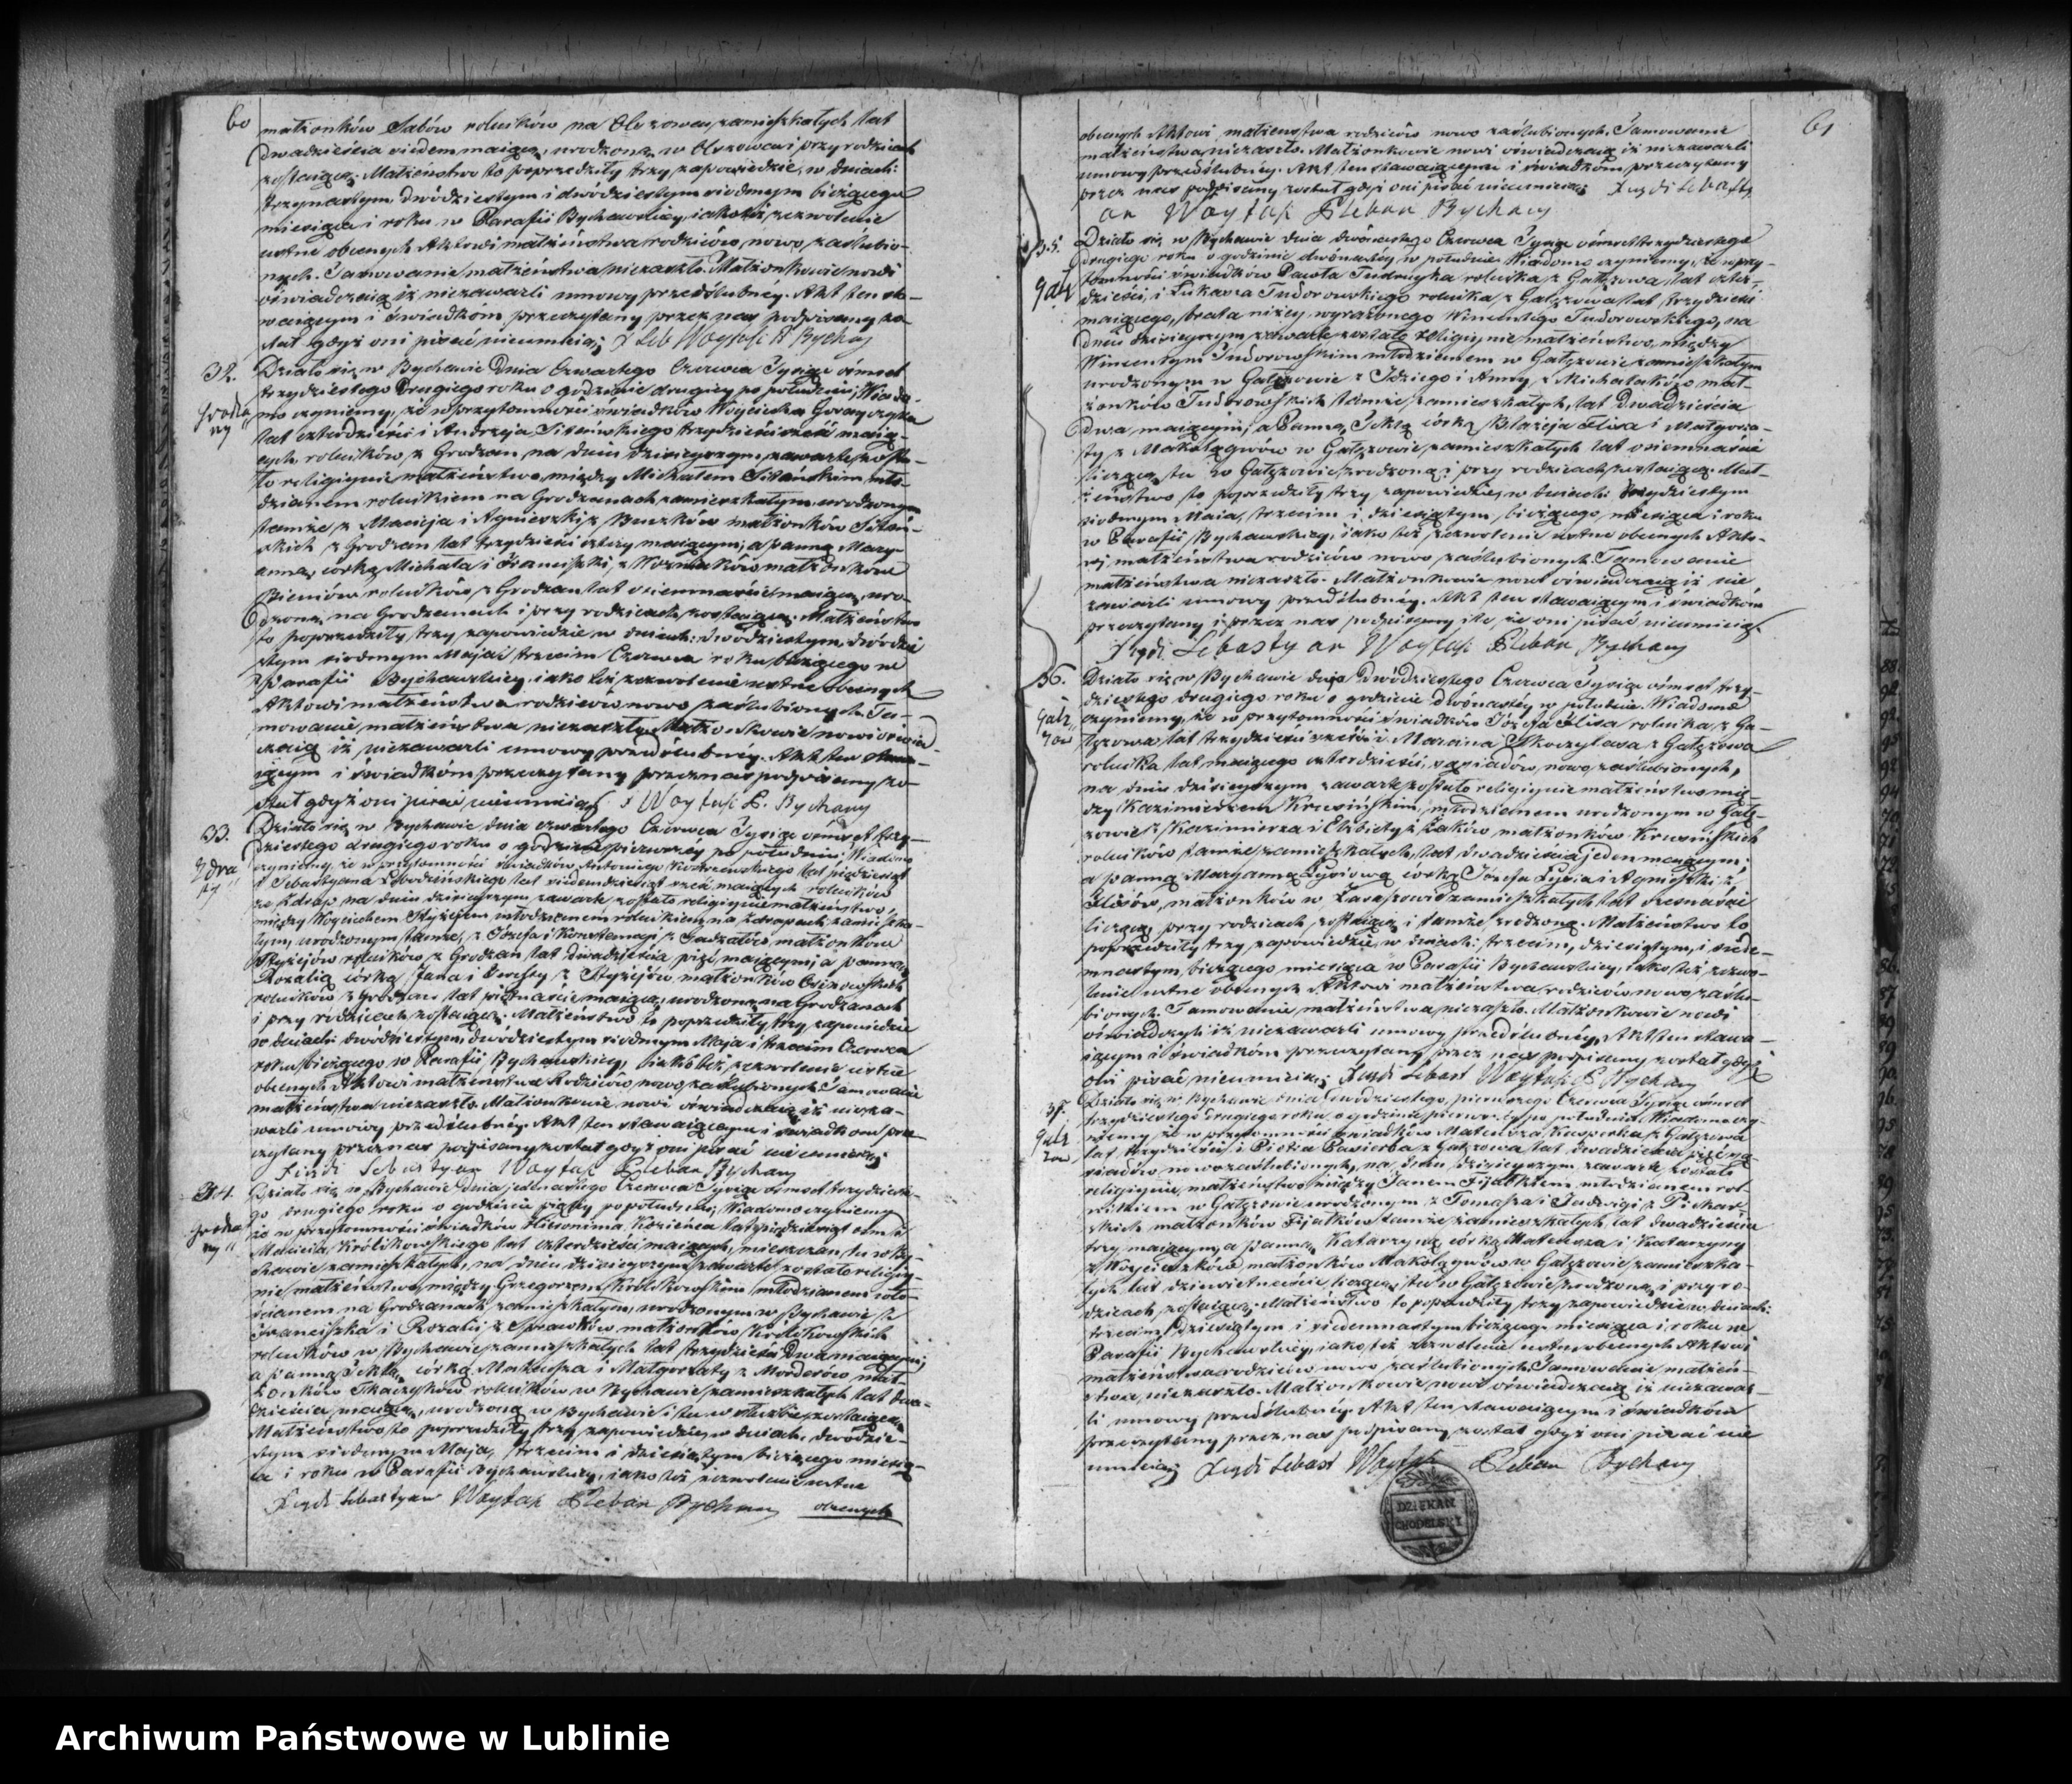 60
małżonków Sabów rolników na Olszowcu zamieszkałych lat
dwadzieścia siedem maiącą, urodzoną w Olszowcu i przy rodzicach
zostaiącą. Małżeństwo to poprzedziły trzy zapowiedzie w dniach:
trzynastym, dwódziestym i dwódziestym siodmym bieżącego
miesiąca i roku w Parafii Bychawskiey, iako też zezwolenie
ustne obecnych Aktowi małżeństwa rodziców nowo zaślubio-
nych. Tamowanie małżeństwa niezaszło. Małżonkowie nowi
oświadczaią iż niezawarli umowy przedślubnéy. Akt ten sta-
waiącym i świadkom przeczytany przez nas podpisany zo-
stał gdyż oni pisać nieumieią; X Seb Woytaś P. Bychawy
32.
Grodza
ny
Działo się w Bychawie Dnia Czwartego Czerwca Tysiąc ośmset
trzydziestego Drugiego roku o godzinie drugiéy po południu; Wiado-
mo czyniemy, że w przytomności świadków Woyciecha
lat czterdzieści i Andrzeja trzydzieści sześć maią-
cych, rolników z Grodzan na dniu dzisieyszym zawarte zosta-
ło religiynie małżeństwo między Michałem mło-
dzianem rolnikiem na Grodzanach zamieszkałym urodzonym
tamże z Macieja i Agnieszki z małżonków
skich z Grodzan lat trzydzieści cztery maiącym; a panną Mary-
anną córką Michała i Franciszki z małżonków
rolników z Grodzan lat ośiemnaście maiącą, uro-
dzoną na Grodzanach i przy rodzicach zostaiącą. Małżeństwo
to poprzedziły trzy zapowiedzie w dniach: dwódziestym, dwódzie
stym siodmym Maja i trzecim Czerwca roku bieżącego w
Parafii Bychawskiey, iako też zezwolenie ustne obecnych
Aktowi małżeństwa rodziców nowo zaślubionych. Ta-
mowanie małżeństwa niezaszło. Małżonkowie nowi oświad-
czaią iż niezawarli umowy przedślubnéy. Akt ten stawa-
iącym i świadkom przeczytany przez nas podpisany zo-
stał gdyż oni pisać nieumieią. X Woytaś P. Bychawy
33.
Zdra
py
Działo się w Bychawie dnia czwartego Czerwca Tysiąc ośmset trzy-
dziestego drugiego roku o godzinie pierwszéy po południu; Wiadomo
czyniemy, że w przytomności świadków Antoniego lat pięćdziesiąt
i Sebastyana lat siedemdziesiąt sześć maiących rolników
ze Zdrap na dniu dzisieyszym zawarte zostało religiynie małżeństwo
między Woyciechem Styżejem młodzianem rolnikiem na Zdrapach zamieszka-
łym, urodzonym tamże, z Józefa i Konstancyi z małżonków
Styżejów rolników z Grodzan lat dwadzieścia pięć maiącym; a panną
Rozalią córką Jana i Teressy z Styżejów małżonków
rolników z Grodzan lat piętnaście maiącą, urodzoną na Grodzanach
i przy rodzicach zostaiącą. Małżeństwo to poprzedziły trzy zapowiedzie
w dniach: dwódziestym, dwódziestym siodmym Maja i trzecim Czerwca
roku bieżącego w Parafii Bychawskiey, iako też zezwolenie ustne
obecnych Aktowi małżeństwa Rodziców nowo zaślubionych. Tamowanie
małżeństwa niezaszło. Małżonkowie nowi oświadczaią iż nieza-
warli umowy przedślubnéy. Akt ten stawaiącym i świadkom prze-
czytany przez nas podpisany został gdyż oni pisać nie umieią;
Xiądz Sebastyan Woytaś Pleban Bychawy
34.
Grodza
ny
Działo się w Bychawie Dnia jedenastego Czerwca Tysiąc ośmset trzydzieste-
go drugiego roku o godzinie piątéy po południu; Wiadomo czyniemy
że w przytomności świadków Hieronima lat pięćdziesiąt ośm i
Macieja Królikowskiego lat czterdzieści maiących, mieszczan tu w By-
chawie zamieszkałych, na dniu dzisieyszym zawarte zostało religiy-
nie małżeństwo między Grzegorzem Królikowskim młodzianem wło-
ścianem na Grodzanach zamieszkałym, urodzonym w Bychawie z
Franciszka i Rozalii z małżonków Królikowskich
rolników w Bychawie zamieszkałych lat trzydzieści dwa maiącym;
a panną Teklą córką Mateusza i Małgorzaty z Morderów mał-
żonków Tkaczyków rolników w Bychawie zamieszkałych lat dwa-
dzieścia maiącą, urodzoną w Bychawie i tu w służbie zostaiącą.
Małżeństwo to poprzedziły trzy zapowiedzie w dniach: dwódzie-
stym siodmym Maja, trzecim i dziesiątym bieżącego miesią-
ca i roku w Parafii Bychawskiey, iako też zezwolenie ustne
Xiądz Sebastyan Woytaś Pleban Bychawy obecnych
61
obecnych Aktowi małżeństwa rodziców nowo zaślubionych. Tamowanie
małżeństwa niezaszło. Małżonkowie nowi oświadczaią iż niezawarli
umowy przedślubnéy. Akt ten stawaiącym i świadkom przeczytany
przez nas podpisany został gdyż oni pisać nieumieią; Xiądz Sebasty
an Woytaś Pleban Bychawy
35.
Gałz
Działo się w Bychawie dnia dwónastego Czerwca Tysiąc ośmset trzydziestego
drugiego roku o godzinie dwónastéy w południe. Wiadomo czyniemy, że w przy-
tomności świadków Pawła rolnika z Gałęzowa, lat czter-
dzieści, i Łukasza Tudorowskiego rolnika z Gałęzowa lat trzydzieści
maiącego, brata niżéy wyrażonego Wincentego Tudorowskiego, na
dniu dzisieyszym zawarte zostało religiynie małżeństwo między
Wincentym Tudorowskim młodzianem w Gałęzowie zamieszkałym
urodzonym w Gałęzowie z Idziego i Anny z Michałaków mał-
żonków Tudorowskich tamże zamieszkałych, lat dwadzieścia
dwa maiącym; a Panną Teklą córką Błażeja Flisa i Małgorza-
ty z Makolągwów w Gałęzowie zamieszkałych lat osiemnaście
liczącą, tu w Gałęzowie zrodzoną i przy rodzicach zostaiącą. Mał-
żeństwo to poprzedziły trzy zapowiedzie w dniach: dwydziestym
siodmym Maia, trzecim i dziesiątym, bieżącego miesiąca i roku
w Parafii Bychawskiey, iako też zezwolenie ustne obecnych Akto-
wi małżeństwa rodziców nowo zaślubionych. Tamowanie
małżeństwa niezaszło. Małżonkowie nowi oświadczaią iż nie
zawarli umowy przedślubnéy. Akt ten stawaiącym i świadkom
przeczytany i przez nas podpisany że oni pisać nieumieią.
Xiądz Sebasty an Woytaś Pleban Bychawy
36.
Gałę
zów
Działo się w Bychawie dnia Dwódziestego Czerwca Tysiąc ośmset trzy-
dziestego drugiego roku o godzinie dwónastéy w południe. Wiadomo
czyniemy, że w przytomności świadków Józefa Flisa rolnika z Ga-
łęzowa lat trzydzieści sześć i Marcina Skoczylasa z Gałęzowa
rolnika lat maiącego czterdzieści, sąsiadów nowo zaślubionych,
na dniu dzisieyszym zawarte zostało religiynie małżeństwo mię-
dzy Kazimierzem młodzianem urodzonym w Gałę-
zowie z Kazimierza i Elżbiety z Żaków małżonków
rolników tamże zamieszkałych, lat dwadzieścia jeden maiącym;
a panną Maryanną córką Józefa i Agnieszki z
Flisów, małżonków w zamieszkałych lat szesnaście
liczącą, przy rodzicach zostaiącą i tamże zrodzoną. Małżeństwo to
poprzedziły trzy zapowiedzie w dniach: trzecim, dziesiątym, i siede-
mnastym bieżącego miesiąca w Parafii Bychawskiey, iako też zezwo-
lenie ustne obecnych Aktowi małżeństwa rodziców nowo zaślu-
bionych. Tamowanie małżeństwa niezaszło. Małżonkowie nowi
oświadczyli iż niezawarli umowy przedślubnéy. Akt ten stawa-
iącym i świadkom przeczytany przez nas podpisany został gdyż
oni pisać nieumieią; Xiądz Sebast Woytaś P. Bychawy
37.
Gałę
zów
Działo się w Bychawie dnia dwódziestego pierwszego Czerwca Tysiąc ośmset
trzydziestego drugiego roku o godzinie pierwszéy po południu. Wiadomo czy-
niemy że w przytomności świadków Mateusza Kasperka z Gałęzowa
lat trzydzieści i Piotra z Gałęzowa lat dwadzieścia pięć są-
siadów nowozaślubionych, na dniu dzisieyszym zawarte zostało
religiynie małżeństwo między Janem Fijałkiem młodzianem rol-
nikiem w Gałęzowie urodzonym z Tomasza i Jadwigi z Piekar-
skich małżonków Fijałków tamże zamieszkałych, lat dwadzieścia
trzy maiącym, a panną Katarzyną córką Mateusza i Katarzyny
z Woyciuszków małżonków Makolągwów w Gałęzowie zamieszka-
łych lat dziewiętnaście liczącą, tu w Gałęzowie zrodzoną i przy ro-
dzicach zostaiącą. Małżeństwo to poprzedziły trzy zapowiedzie w dniach:
trzecim, dziesiątym i siedemnastym bieżącego miesiąca i roku w
Parafii Bychawskiey, iako też zezwolenie ustne obecnych Aktowi
małżeństwa rodziców nowo zaślubionych. Tamowanie małżeń-
stwa niezaszło. Małżonkowie nowi oświadczaią iż niezawar-
li umowy przedślubnéy. Akt ten stawaiącym i świadkom
przeczytany przez nas podpisany został gdyż oni pisać nie
umieią; Xiądz Sebast Woytaś Pleban Bychawy
DZIEKAN
CHODELSKI
Archiwum Państwowe w Lublinie